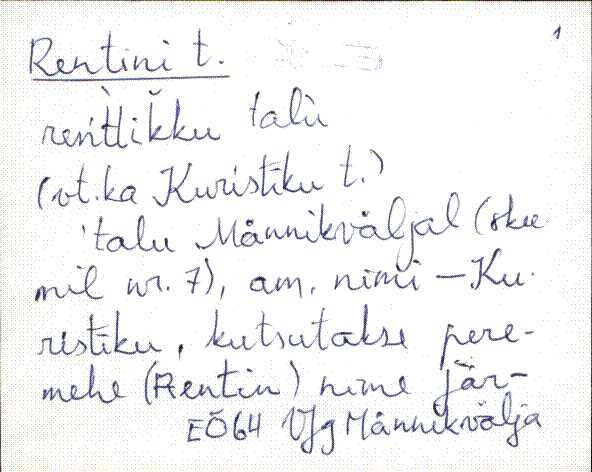 1
Rentini t.
reńtĭikku talù
(vt. ka Kuristiku t.)
'talu Männikväljal (sku
mil nr. 7), am. nimi – Ku-
ristiku, kutsutakse pere-
mehe (Rentin) nime jär-
EÕ64 VJg Männikvälja